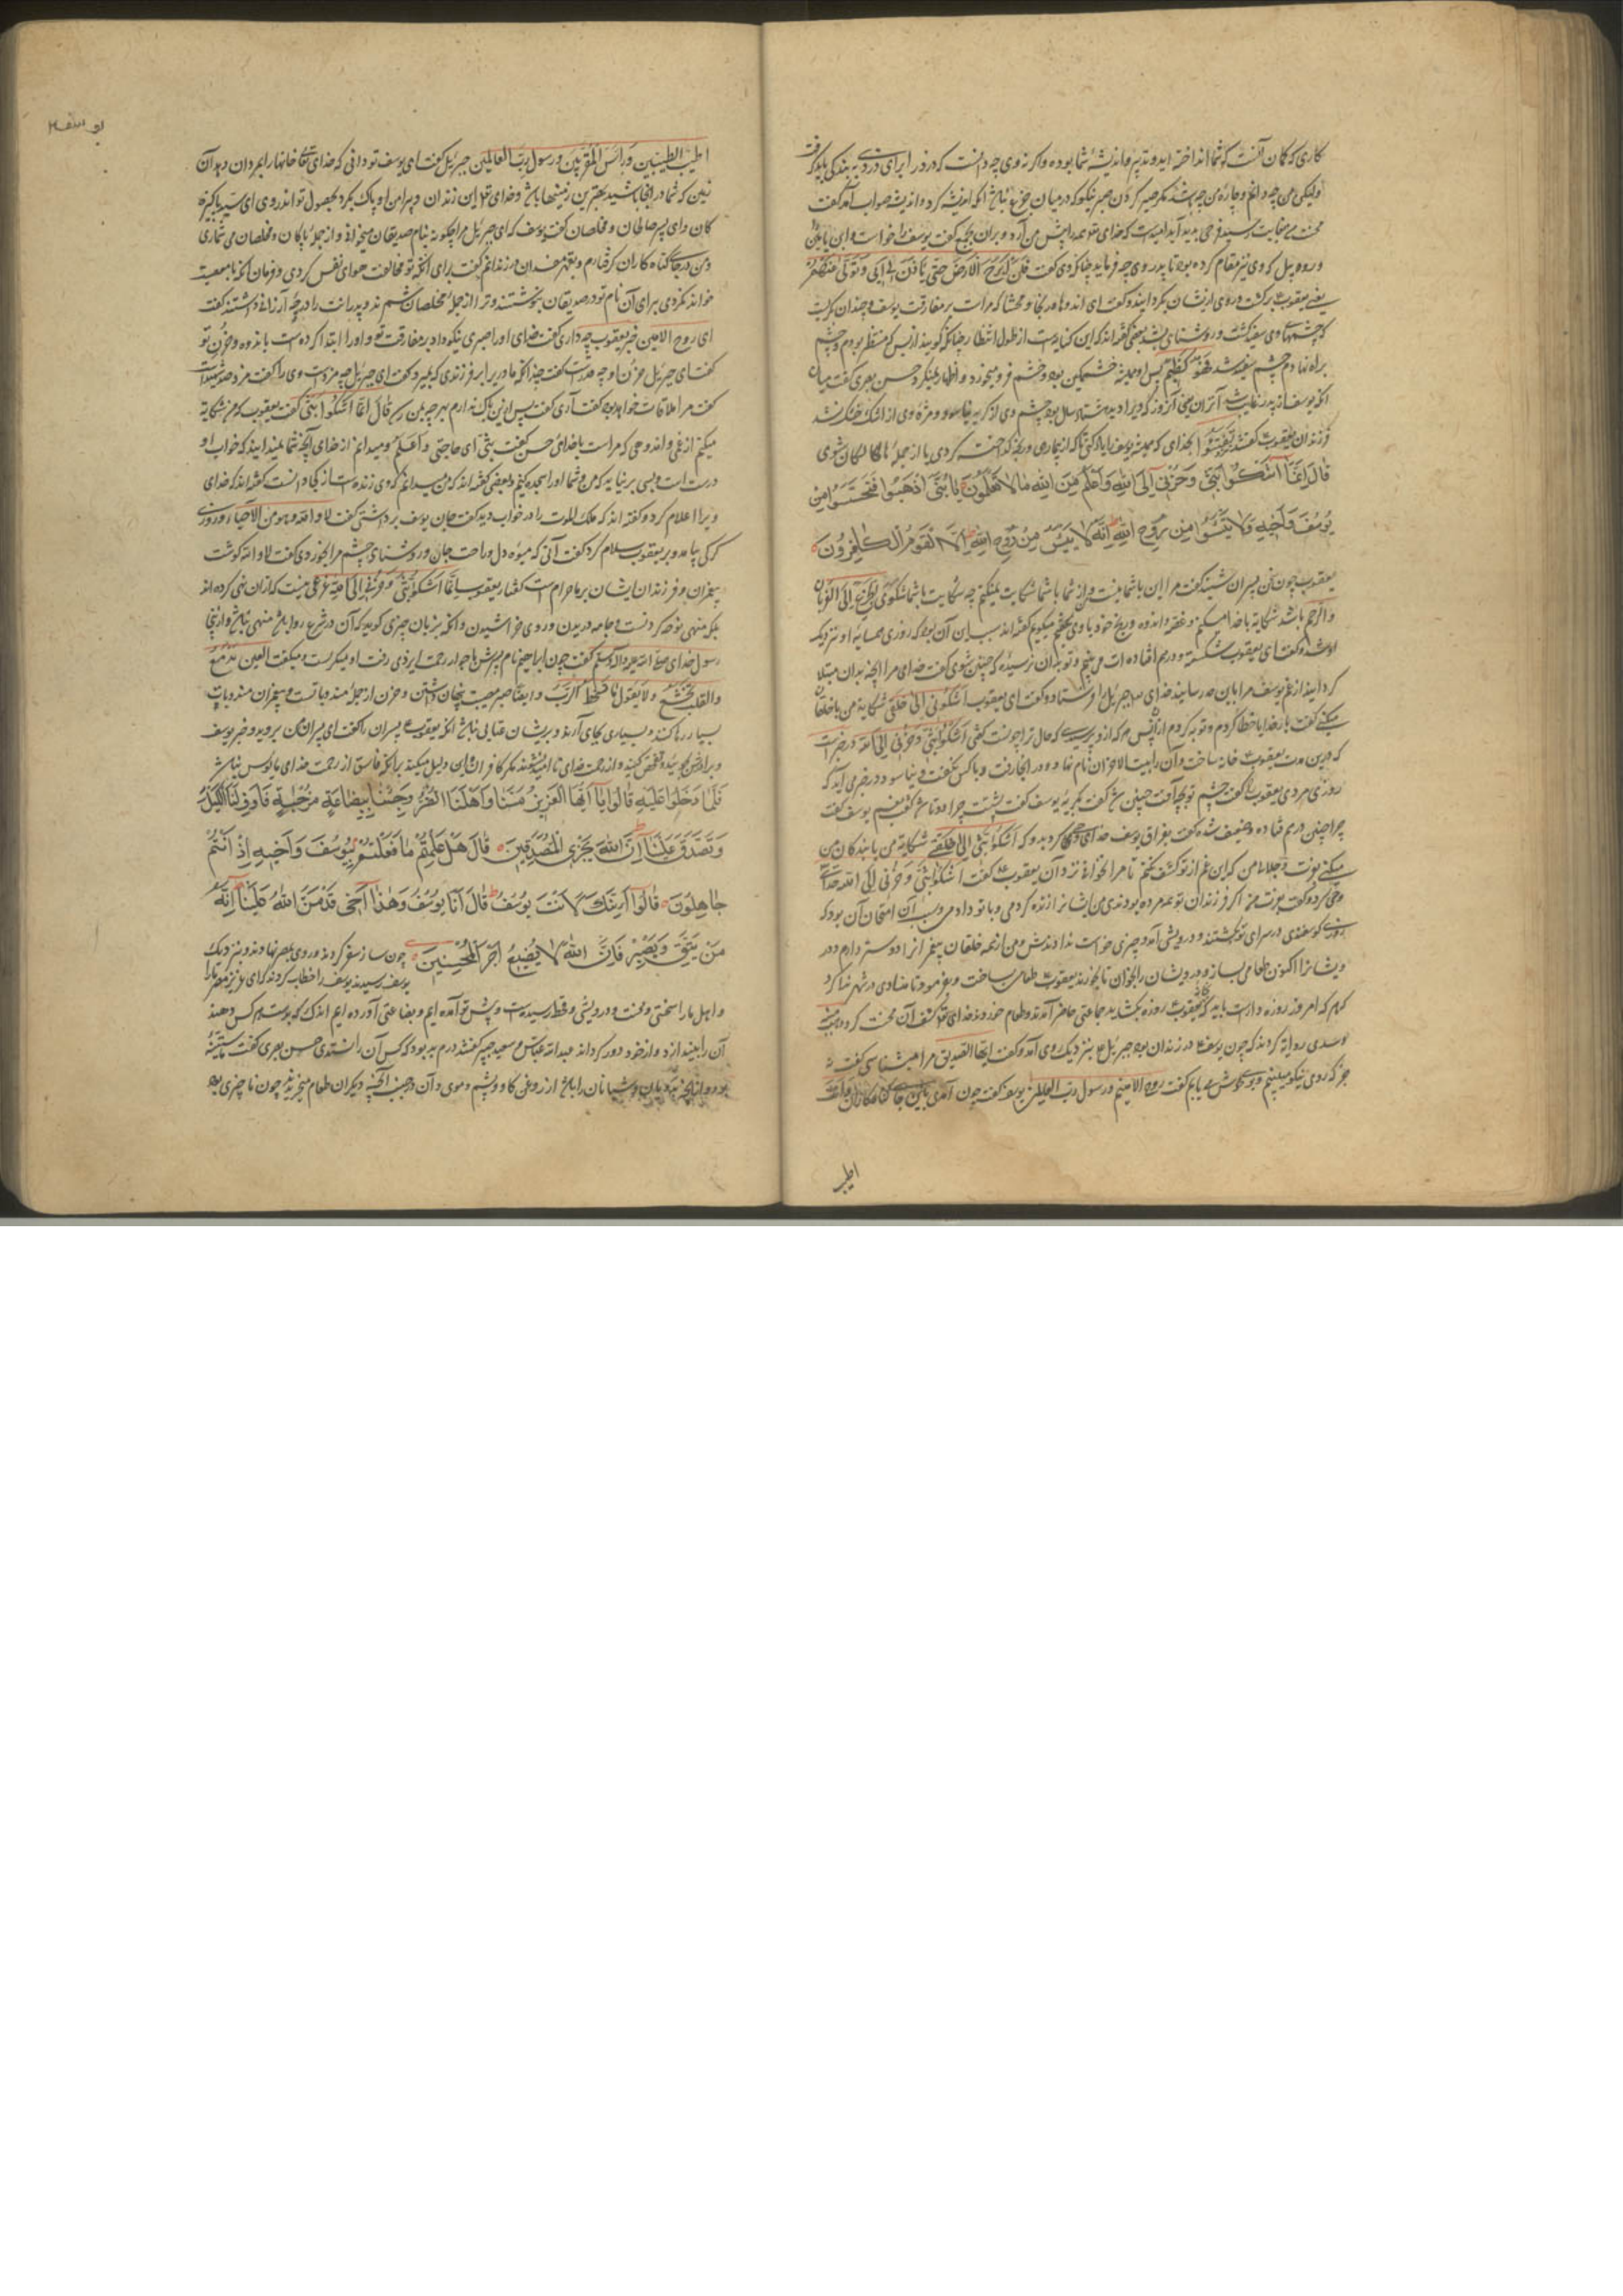 کاری که کمان آنست که شما انداخته اید و تدبیر و اندیشهٔ شما بوده و اگر نه وی چه دانست که در دزد را برای دزدی به بندگی باید گرفت
ولیکن من چه دانم و چارهٔ من چه باشد مگر صبر کردن صبر نیکو که در میان جزع نباشد آنکه اندیشه کرد و اندیشه صواب آمد گفت
محنت بغایت رسید فرجی پدید آید امیدست که خدای همه را پیش من آرد و بران بجمع گفت یوسف را خواست و ابن یامین را
و روبیل که وی نیز مقام کرده بود تا پدر وی چه فرماید چنانکه وی گفت فلن ابرح الارض حتی یأذن لی ابی وتولی عنهم
یعنی یعقوب برگشت و روی از ایشان بگردانید و گفت ای اندوها مرا که مراست بر مفارقت یوسف و چندان بگریست
که چشمهای وی سفید گشت و روشنایی بشد بعضی گفته اند که این کنایه است از طول انتظار چنانکه گویند از بس که منتظر بودم و چشم
براه نهادم چشم سفید شد فهو کظیم پس او همیشه خشمگین بود و خشم فرو میخورد و اظهار نمیکرد حسن بصری گفت میان
آنکه یوسف از پدر غایب شد تا آن روز که ویرا دید هشتاد سال بود چشم وی از گریه نیاسود و مژهٔ وی از اشک خشک نشد
فرزندان یعقوب گفتند تفتؤا بخدای که همیشه یوسف یاد کنی تا که از بیماری و رنج گداخته گردی یا از جملهٔ هالکان شوی
قال انما اشکوا بثی وحزنی الی الله واعلم من الله ما لا تعلمون یا بنی اذهبوا فتحسسوا من
یوسف واخیه ولا تیئسوا من روح الله انه لا ییئس من روح الله الا القوم الکافرون
یعقوب چون این پسران شنید گفت مرا این با شما نیست و از شما با شما شکایت نمیکنم چه شکایت با شما شکوی
والرخم باشد شکایه با خدا میکنم و غصه و اندوه و رنج خود با وی میگویم گفته اند سبب آن آن بود که روزی همسایهٔ او نزدیک
او شد و گفت ای یعقوب شکسته و درهم افتاده ات می بینم و تو بدان نرسیدهٔ که چنین شوی گفت خدای مرا آنچه بدان مبتلا
کردانید از غم یوسف مرا بدان حد رسانید خدای جبرئیل را فرستاد و گفت ای یعقوب اتشکونی الی خلقی شکایه من با خلقان
میکنی گفت بار خدایا خطا کردم و توبه کردم از آن پس هر که ازو پرسیدی که حال تو چونست گفتی اشکوا بثی وحزنی الی الله و در خبرست
که درین مدت یعقوب خانه ساخت و آن را بیت الاحزان نام نهاد و در آنجا رفت و با کس نگفت و نیاسود و در خبر می آید که
روزی مردی یعقوب را گفت چشم تو بچه آفت چنین شد گفت بگریه یوسف گفت پشتت چرا دوتا شد گفت بغم یوسف گفت
چرا چنین درهم فتاده و ضعیف شده گفت بفراق یوسف خدای وحی کرد بدو که اتشکوا بثی الی خلقی شکایه من با بندگان من
میکنی بعزت و جلال من که این غم از تو کشف نکنم تا مرا نخوانی نزد آن یعقوب گفت اشکوا بثی وحزنی الی الله خدای
وحی کرد و گفت بعزت من اگر فرزندان تو همه مرده بودندی من ایشانرا زنده کردمی و با تو دادمی و سبب این امتحان آن بود که
روزی گوسفندی در سرای تو بکشتند و درویشی آمد و چیزی خواست ندادندش و من از همه خلقان پیغمبرانرا دوستر دارم و درو
ویشانرا اکنون طعامی بساز و درویشان را بخوان تا بخورند یعقوب طعامی ساخت و بفرمود تا منادی در شهر ندا کرد
که هر که امروز روزه دارست باید که بخانه یعقوب روزه بگشاید جماعتی حاضر آمدند و طعام خوردند خدای تعالی کشف آن محنت کرد و همچنین
سدی روایة کردند که چون یوسف در زندان بود جبرئیل بنزدیک وی آمد و گفت ایها الصدیق مرا میشناسی گفت نه
جز که روی نیکو میبینم و بوی خوش می یابم گفت روح الامینم و رسول رب العالمین یوسف گفت چون آمدی باین جای گناهکاران و انت
اطیب
یوسف
اطیب الطیبین ورأس المقربین ورسول رب العالمین جبرئیل گفت ای یوسف تو دانی که خدای تعالی خانها را بمردان دهد آن
زمین که شما در آنجا باشید بهترین زمینها باشد و خدای تعالی این زندان و پیرامن او پاک بکرد بحصول تو اندروی ای سر پاکیزه
کان و ای پسر صالحان و مخلصان گفت یوسف که ای جبرئیل مرا چگونه بنام صدیقان میخوانی و از جملهٔ پاکان و مخلصان می شماری
و من در جای گناه کاران گرفتارم و بتهمت مفسدان در زندانم گفت برای آنکه تو مخالفت هوای نفس کردی و فرمان آنکه با معصیت
خواند نکردی برای آن نام تو در صدیقان بنوشتند و ترا از جملهٔ مخلصان شمردند و پدرانت را درجه ارزانی داشتند گفت
ای روح الامین خبر یعقوب چه داری گفت خدای او را صبری نیکو داد بر مفارقت تو و او را ابتدا کرده است باندوه و حزن تو
گفت ای جبرئیل حزن او چه حدست گفت چندانکه مادر برابر فرزندی که بمیرد گفت ای جبرئیل چه مزدست وی را گفت مزد صد شهید
گفت مرا ملاقات خواهد بود گفت آری گفت پس ازین باک ندارم بهرچه بمن رسد قال انما اشکوا بثی گفت یعقوب که من شکایه
میکنم از غمی و اندوهی که مراست با خدای حسن گفت بثی ای حاجتی واعلم و میدانم از خدای آنچه شما نمیدانید که خواب او
درست است و بسی برنیاید که من و شما او را سجده کنیم و بعضی گفته اند که من میدانم که وی زنده است از کجا دانست گفته اند که خدای
ویرا اعلام کرد و گفته اند که ملک الموت را در خواب دید گفت جان یوسف برداشتی گفت لا والله وهو من الاحیاء و روزی
گرگی بیامد و بر یعقوب سلام کرد گفت آنی که میوه دل و راحت جان و روشنای چشم مرا بخوردی گفت لا والله گوشت
پیغمبران و فرزندان ایشان بر ما حرام است گفتار یعقوب انما اشکوا بثی وحزنی الی الله نیست که ازان نهی کرده اند
بلکه منهی نوحه کردنست و جامه دریدن و روی خراشیدن و آنکه بزبان چیزی گوید که آن در شرع روا باشد منهی نباشد
رسول خدای صلی الله علیه واله وسلم گفت چون ابراهیم نام پسرش با جوار رحمت ایزدی رفت او میگریست و میگفت العین تدمع
والقلب یخشع ولا یقول ما یسخط الرب و ایضا صبر مصیبت پنهان داشتن و حزن از جملهٔ مندوباتست و پیغمبران مندوبات
بسیار رها کنند و بسیاری بجای آرند و بریشان عتابی نباشد آنکه یعقوب پسران را گفت ای پسران من بروید و خبر یوسف
و برادرش بجوئید و تفحص کنید و از رحمت خدای ناامید نشوند مگر کافران و این دلیل میکند بر آنکه فاسق از رحمت خدای مأیوس نباشد
فلما دخلوا علیه قالوا یا ایها العزیز مسنا واهلنا الضر وجئنا ببضاعة مزجیة فاوف لنا الکیل
وتصدق علینا ان الله یجزی المتصدقین قال هل علمتم ما فعلتم بیوسف واخیه اذ انتم
جاهلون قالوا ائنک لانت یوسف قال انا یوسف وهذا اخی قد من الله علینا انه
من یتق ویصبر فان الله لا یضیع اجر المحسنین چون ساز سفر کردند و روی بمصر نهادند و بنزدیک
یوسف رسیدند یوسف را خطاب کردند که ای عزیز مصر ما را
و اهل ما را سختی و محنت و درویشی و قحط رسیدست و پیش تو آمده ایم و بضاعتی آورده ایم اندک که بهر ستدم کس دهند
آن را بیندازد و از خود دور گرداند عبدالله عباس و سعید جبیر گفتند درم بد بود که کس آن را نستدی حسن بصری گفت
بود و شبانان را باشد از روغن گاو و پشم و موی و آن در جنب آنچه دیگران طعام میخریدند چون ناچیزی بود